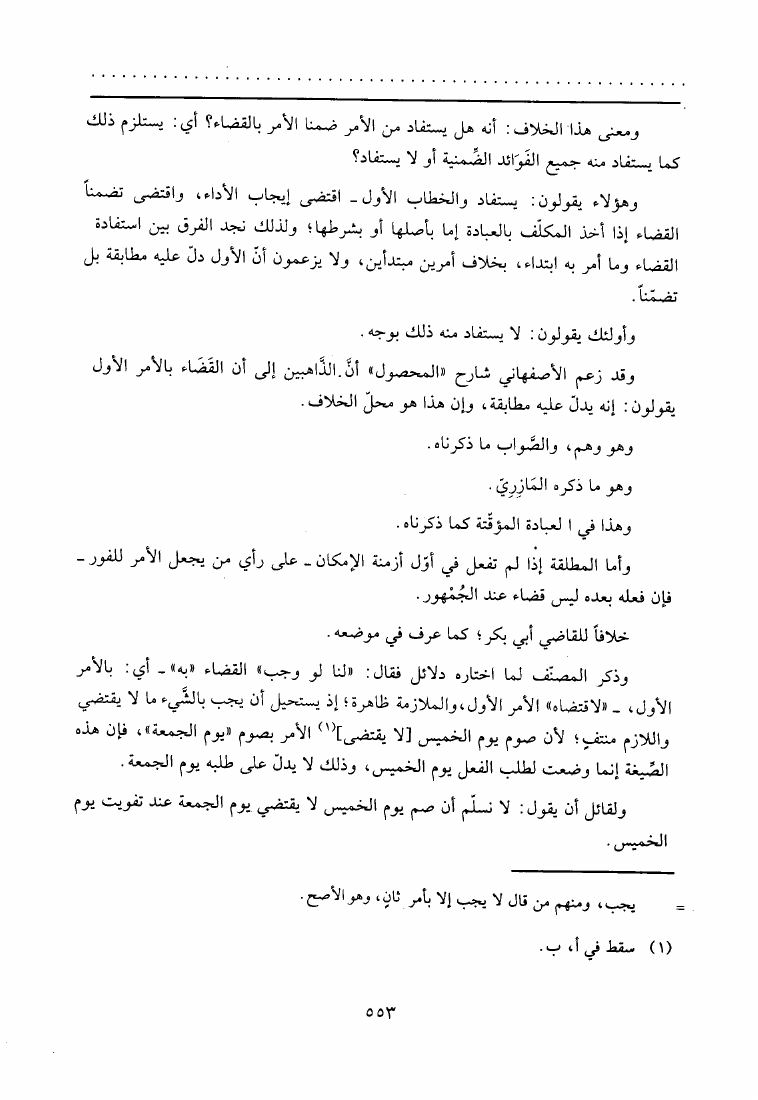 ومعنى هذا الخلاف: أنه هل يستفاد من الأمر ضمنا الأمر بالقضاء؟ أي: يستلزم ذلك
كما يستفاد منه جميع الفَوَائد الضِّمنية أو لا يستفاد؟
وهؤلاء يقولون: يستفاد والخطاب الأول ـ اقتضى إيجاب الأداء، واقتضى تضمناً
القضاء إذا أخذ المكلّف بالعبادة إما بأصلها أو بشرطها؛ ولذلك نجد الفرق بين استفادة
القضاء وما أمر به ابتداء، بخلاف أمرين مبتدأين، ولا يزعمون أنّ الأول دلّ عليه مطابقة بل
تضمّناً.
وأولئك يقولون: لا يستفاد منه ذلك بوجه.
وقد زعم الأصفهاني شارح «المحصول» أنَّ الذَّاهبين إلى أن القَضَاء بالأمر الأول
يقولون: إنه يدلّ عليه مطابقة، وإن هذا هو محلّ الخلاف.
وهو وهم، والصَّواب ما ذكرناه.
وهو ما ذكره المَازِرِيّ.
وهذا في ا لعبادة المؤقّتة كما ذكرناه.
وأما المطلقة إذا لم تفعل في أوّل أزمنة الإمكان ـ على رأي من يجعل الأمر للفور ـ
فإن فعله بعده ليس قضاء عند الجُمْهور.
خلافاً للقاضي أبي بكر؛ كما عرف في موضعه.
وذكر المصنّف لما اختاره دلائل فقال: «لنا لو وجب» القضاء «به» ـ أي: بالأمر
الأول، ـ «لاقتضاه» الأمر الأول،والملازمة ظاهرة؛ إذ يستحيل أن يجب بالشَّيء ما لا يقتضي
واللازم منتفٍ؛ لأن صوم يوم الخميس [لا يقتضى](١) الأمر بصوم «يوم الجمعة»، فإن هذه
الصِّيغة إنما وضعت لطلب الفعل يوم الخميس، وذلك لا يدلّ على طلبه يوم الجمعة.
ولقائل أن يقول: لا نسلّم أن صم يوم الخميس لا يقتضي يوم الجمعة عند تفويت يوم
الخميس.
= يجب، ومنهم من قال لا يجب إلا بأمر ثانٍ، وهو الأصح.
(١) سقط في أ، ب.
٥٥٣